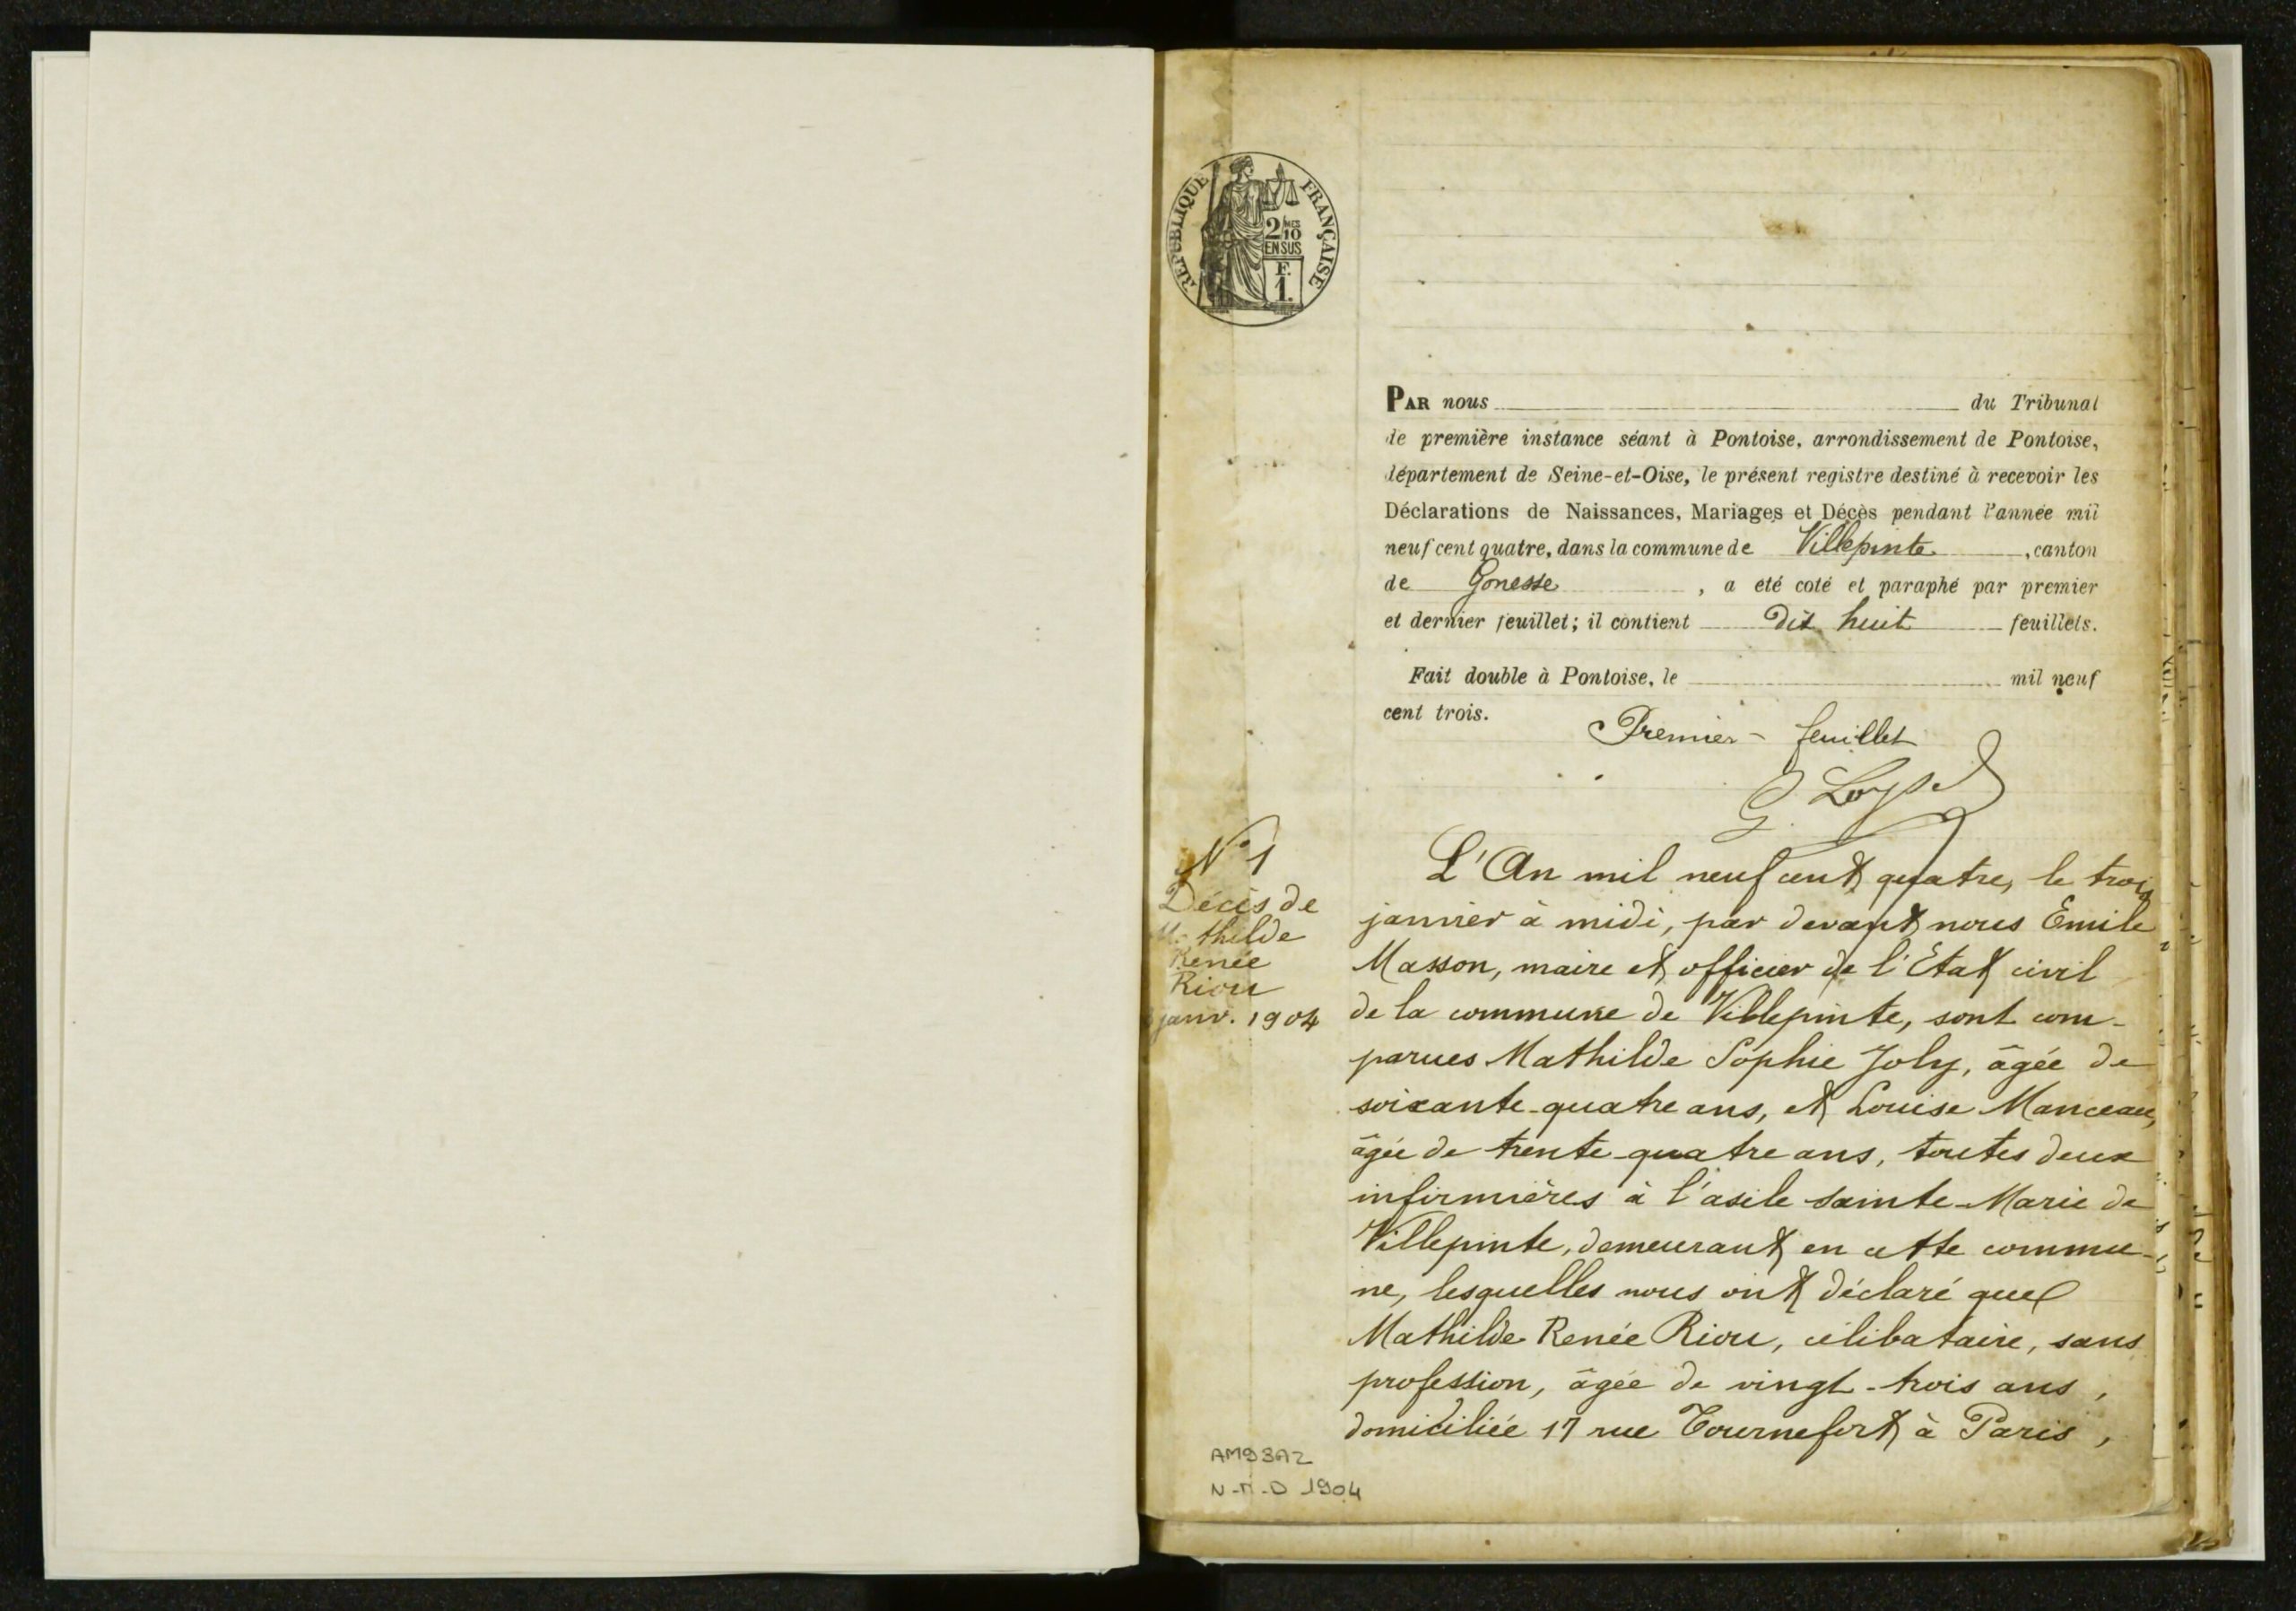 RÉPUBLIQUE FRANÇAISE
2/10 MES
EN SUS
F.
1.
PAR nous du Tribunal
de première instance séant à Pontoise, arrondissement de Pontoise,
département de Seine-et-Oise, le présent registre destiné à recevoir les
Déclarations de Naissances, Mariages et Décès pendant l'année mil
neuf cent quatre, dans la commune de Villepinte, canton
de Gonesse, a été coté et paraphé par premier
et dernier feuillet; il contient dix huit feuillets.
Fait double à Pontoise, le mil neuf
cent trois.
Premier feuillet
G. Loysel
N° 1
Décès de
Mathilde
Renée
Riou
janv. 1904
L'An mil neuf cent quatre, le trois
janvier à midi, par devant nous Emile
Masson, maire et officier de l'Etat civil
de la commune de Villepinte, sont com-
parues Mathilde Sophie Joly, âgée de
soixante-quatre ans, et Louise Manceau,
âgée de trente-quatre ans, toutes deux
infirmières à l'asile Sainte-Marie de
Villepinte, demeurant en cette commu-
ne, lesquelles nous ont déclaré que
Mathilde Renée Riou, célibataire, sans
profession, âgée de vingt-trois ans,
domiciliée 17 rue Tournefort à Paris,
AM93AZ
N-M-D 1904